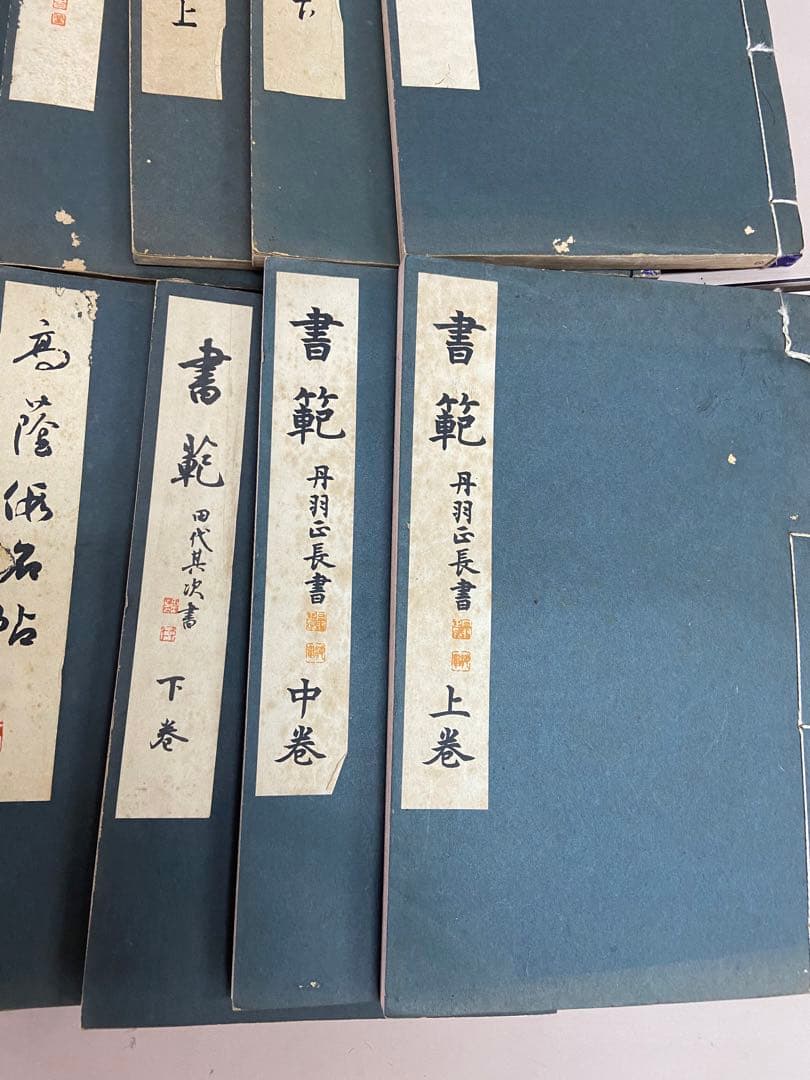 書範 丹羽正長書 上巻
書範 丹羽正長書 中巻
書範 田代其次書 下巻
高蔭假名帖
下
上